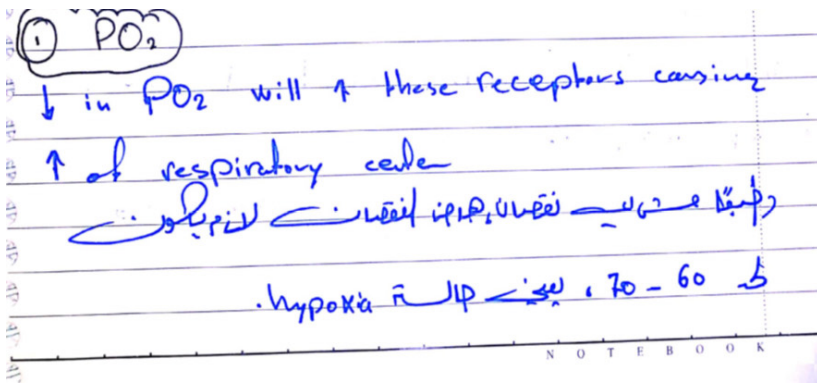 ① PO₂
↓ in PO₂ will ↑ these receptors causing
↑ of respiratory center
وطبعًا مش أي نقصان، هذا النقصان لازم يكون
لـ 60 - 70، يعني حالة hypoxia.
NOTEBOOK